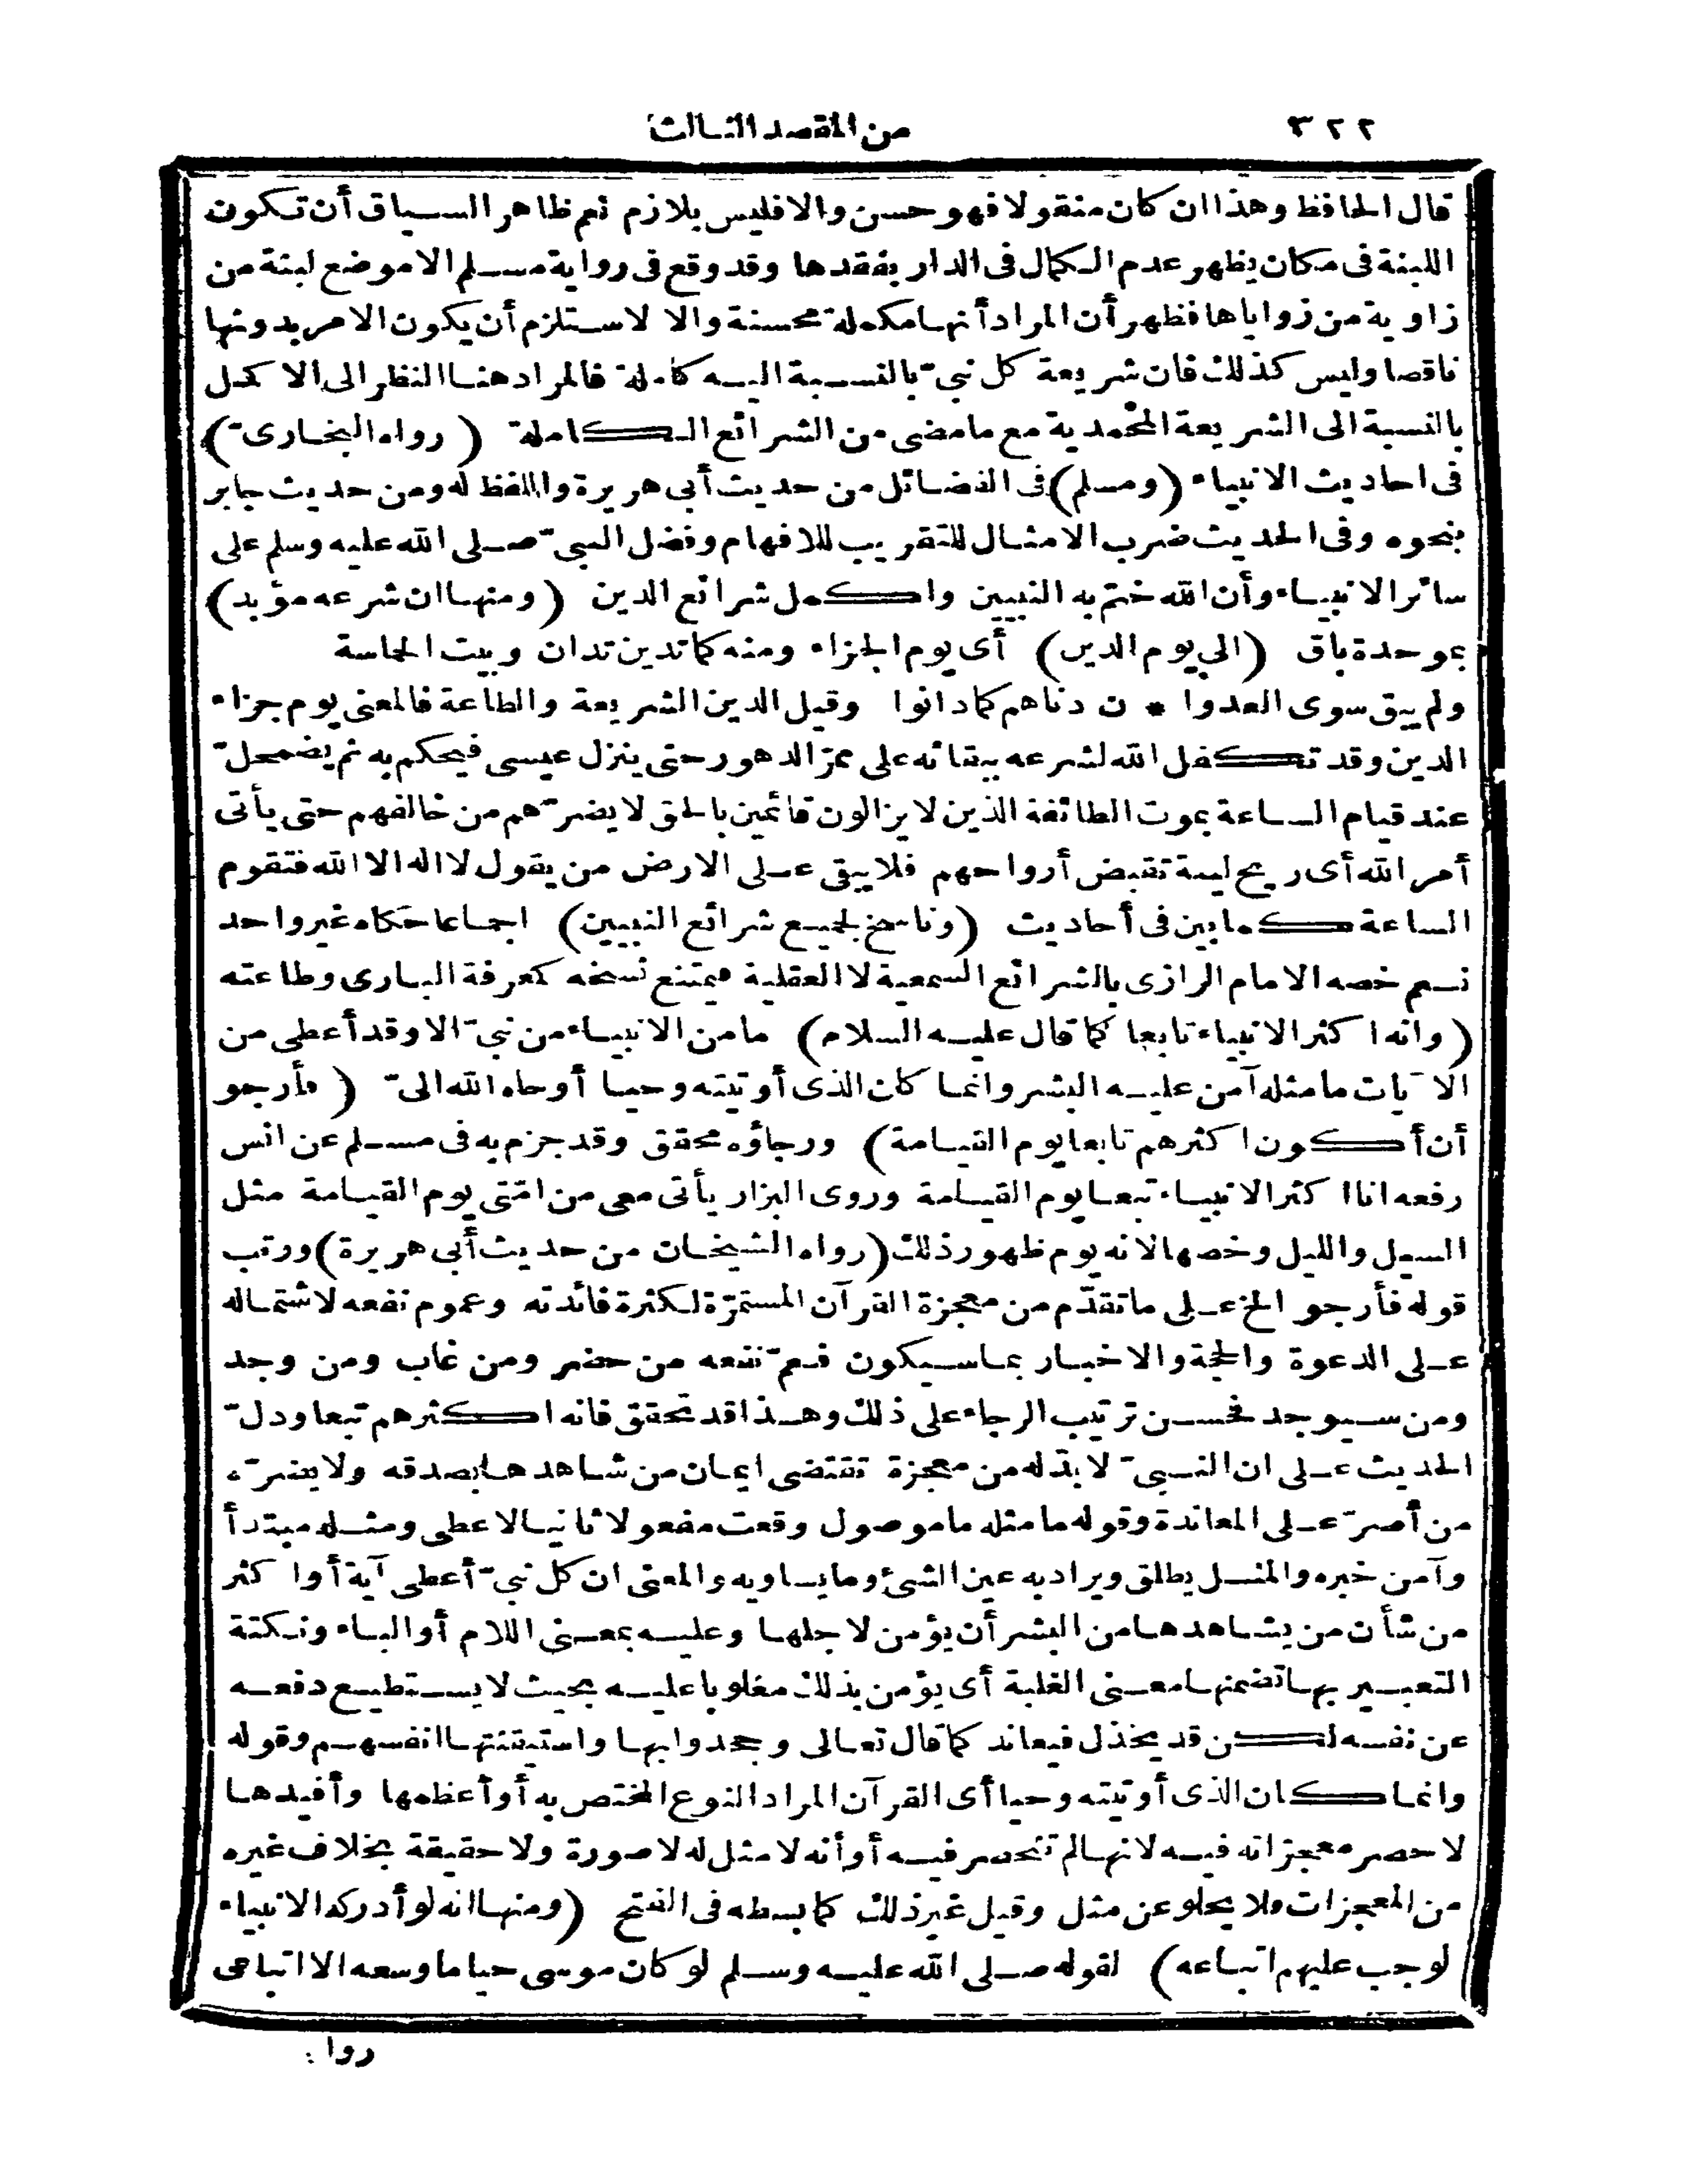 ٣٢٢
من المقصد الثالث
قال الحافظ وهذا ان كان منقولا فهو حسن والا فليس بلازم نعم ظاهر السياق أن تكون
اللبنة فى مكان يظهر عدم الكمال فى الدار بفقدها وقد وقع فى رواية مسلم الا موضع لبنة من
زاوية من زواياها فظهر أن المراد أنها مكملة محسنة والا لاستلزم أن يكون الامر بدونها
ناقصا وليس كذلك فان شريعة كل نبىّ بالنسبة اليه كاملة فالمراد هنا النظر الى الاكمل
بالنسبة الى الشريعة المحمدية مع ما مضى من الشرائع الكاملة (رواه البخارىّ)
فى احاديث الانبياء (ومسلم) فى الفضائل من حديث أبى هريرة واللفظ له ومن حديث جابر
بنحوه وفى الحديث ضرب الامثال للتقريب للافهام وفضل النبىّ صلى الله عليه وسلم على
سائر الانبياء وأن الله ختم به النبيين واكمل شرائع الدين (ومنها ان شرعه مؤبد)
بموحدة باق (الى يوم الدين) أى يوم الجزاء ومنه كما تدين تدان وبيت الحاسة
ولم يبق سوى العدوا * ن دناهم كما دانوا وقيل الدين الشريعة والطاعة فالمعنى يوم جزاء
الدين وقد تكفل الله لشرعه ببقائه على ممرّ الدهور حتى ينزل عيسى فيحكم به ثم يضمحلّ
عند قيام الساعة بموت الطائفة الذين لا يزالون قائمين بالحق لا يضرّهم من خالفهم حتى يأتى
أمر الله أى ريح لينة تقبض أرواحهم فلا يبقى على الارض من يقول لا اله الا الله فتقوم
الساعة كما بين فى أحاديث (وناسخ لجميع شرائع النبيين) اجماعا حكاه غير واحد
نعم خصه الامام الرازى بالشرائع السمعية لا العقلية فيمتنع نسخه كمعرفة البارى وطاعته
(وانه اكثر الانبياء تابعا كما قال عليه السلام) ما من الانبياء من نبىّ الا وقد أعطى من
الآيات ما مثله آمن عليه البشر وانما كان الذى أوتيته وحيا أوحاه الله الىّ (فأرجو
أن أكون اكثرهم تابعا يوم القيامة) ورجاؤه محقق وقد جزم به فى مسلم عن انس
رفعه انا اكثر الانبياء تبعا يوم القيامة وروى البزار يأتى معى من امّتى يوم القيامة مثل
السيل والليل وخصها لانه يوم ظهور ذلك (رواه الشيخان من حديث أبى هريرة) ورتب
قوله فأرجو الخ على ما تقدّم من معجزة القرآن المستمرّة لكثرة فائدته وعموم نفعه لاشتماله
على الدعوة والحجة والاخبار بما سيكون فعمّ نفعه من حضر ومن غاب ومن وجد
ومن سيوجد فحسن ترتيب الرجاء على ذلك وهذا قد تحقق فانه اكثرهم تبعا ودلّ
الحديث على ان النبىّ لا بدّ له من معجزة تقتضى ايمان من شاهدها بصدقه ولا يضرّه
من أصرّ على المعاندة وقوله ما مثله ما موصول وقعت مفعولا ثانيا لاعطى ومثله مبتدأ
وآمن خبره والمثل يطلق ويراد به عين الشئ وما يساويه والمعنى ان كل نبىّ أعطى آية أو اكثر
من شأن من يشاهدها من البشر أن يؤمن لاجلها وعليه بمعنى اللام أو الباء ونكتة
التعبير بها تضمنها معنى الغلبة أى يؤمن بذلك مغلوبا عليه بحيث لا يستطيع دفعه
عن نفسه لكن قد يخذل فيعاند كما قال تعالى وجحدوا بها واستيقنتها انفسهم وقوله
وانما كان الذى أوتيته وحيا أى القرآن المراد النوع المختص به أو أعظمها وأفيدها
لا حصر معجزاته فيه لانها لم تنحصر فيه أو أنه لا مثل له لا صورة ولا حقيقة بخلاف غيره
من المعجزات فلا يخلو عن مثل وقيل غير ذلك كما بسطه فى الفتح (ومنها انه لو أدركه الانبياء
لوجب عليهم اتباعه) لقوله صلى الله عليه وسلم لو كان موسى حيا ما وسعه الا اتباعى
رواه